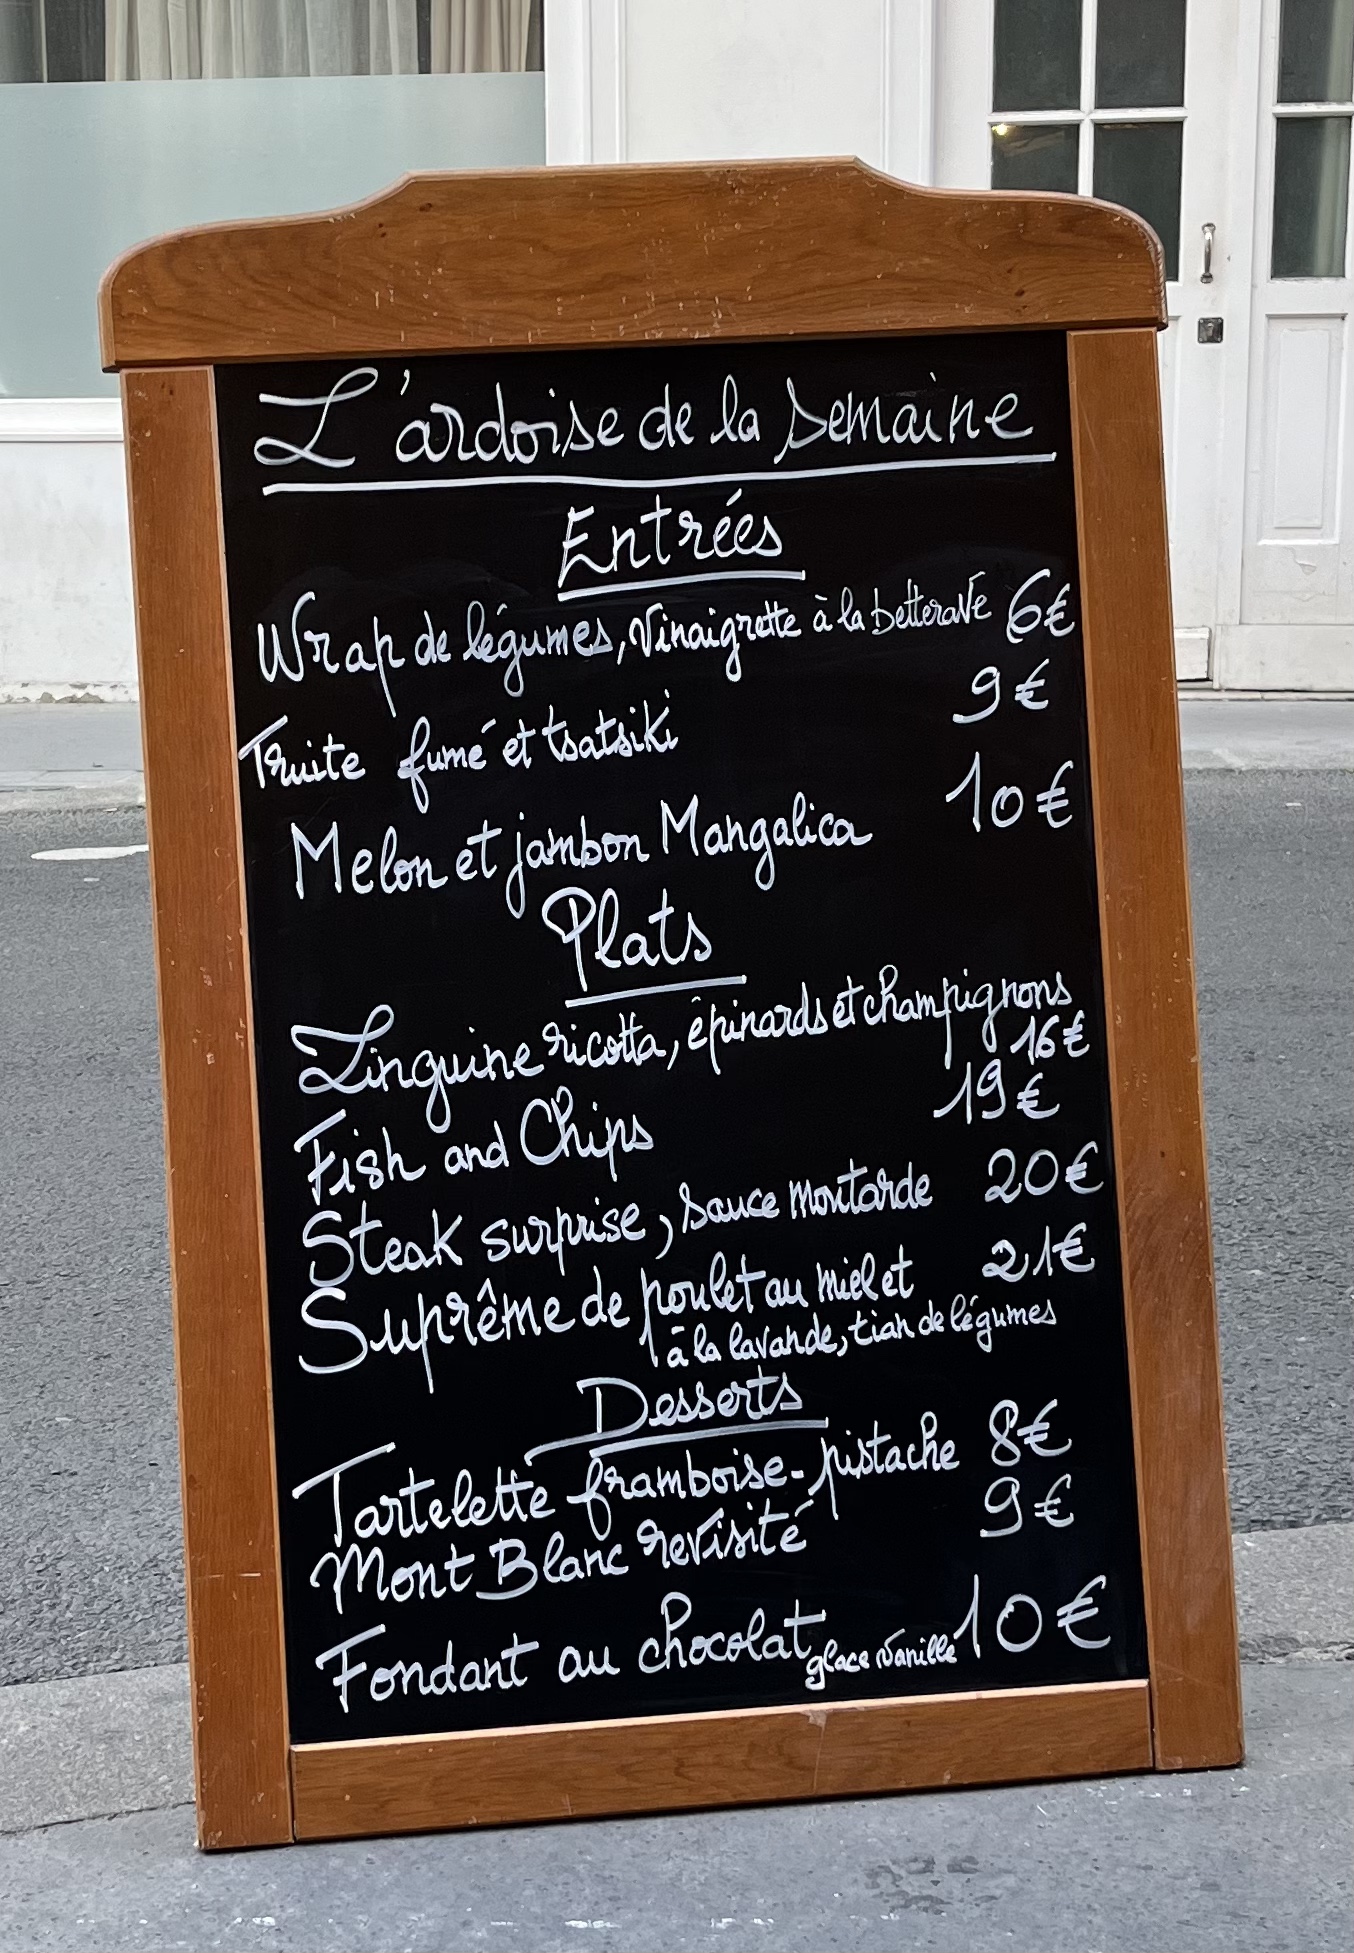 L'ardoise de la semaine
Entrées
Wrap de légumes, vinaigrette à la betterave 6€
Truite fumé et tsatsiki 9€
Melon et jambon Mangalica 10€
Plats
Linguine ricotta, épinards et champignons
16€
Fish and Chips 19€
Steak surprise, sauce moutarde 20€
Suprême de poulet au miel et 21€
à la lavande, tian de légumes
Desserts
Tartelette framboise-pistache 8€
Mont Blanc revisité 9€
Fondant au chocolat glace vanille 10€